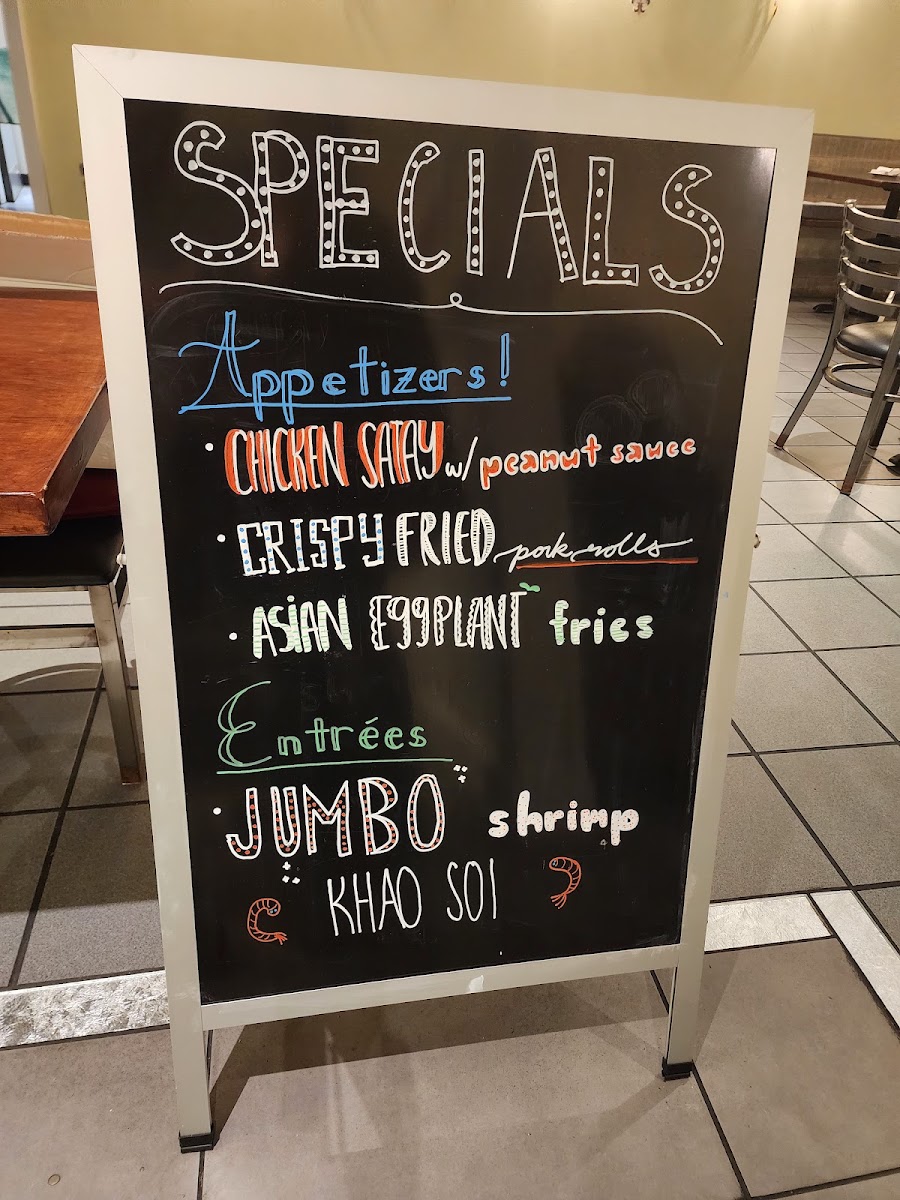 SPECIALS
Appetizers!
• CHICKEN SATAY w/ peanut sauce
• CRISPY FRIED pork rolls
• ASIAN EGGPLANT fries
Entrées
• JUMBO shrimp
KHAO SOI